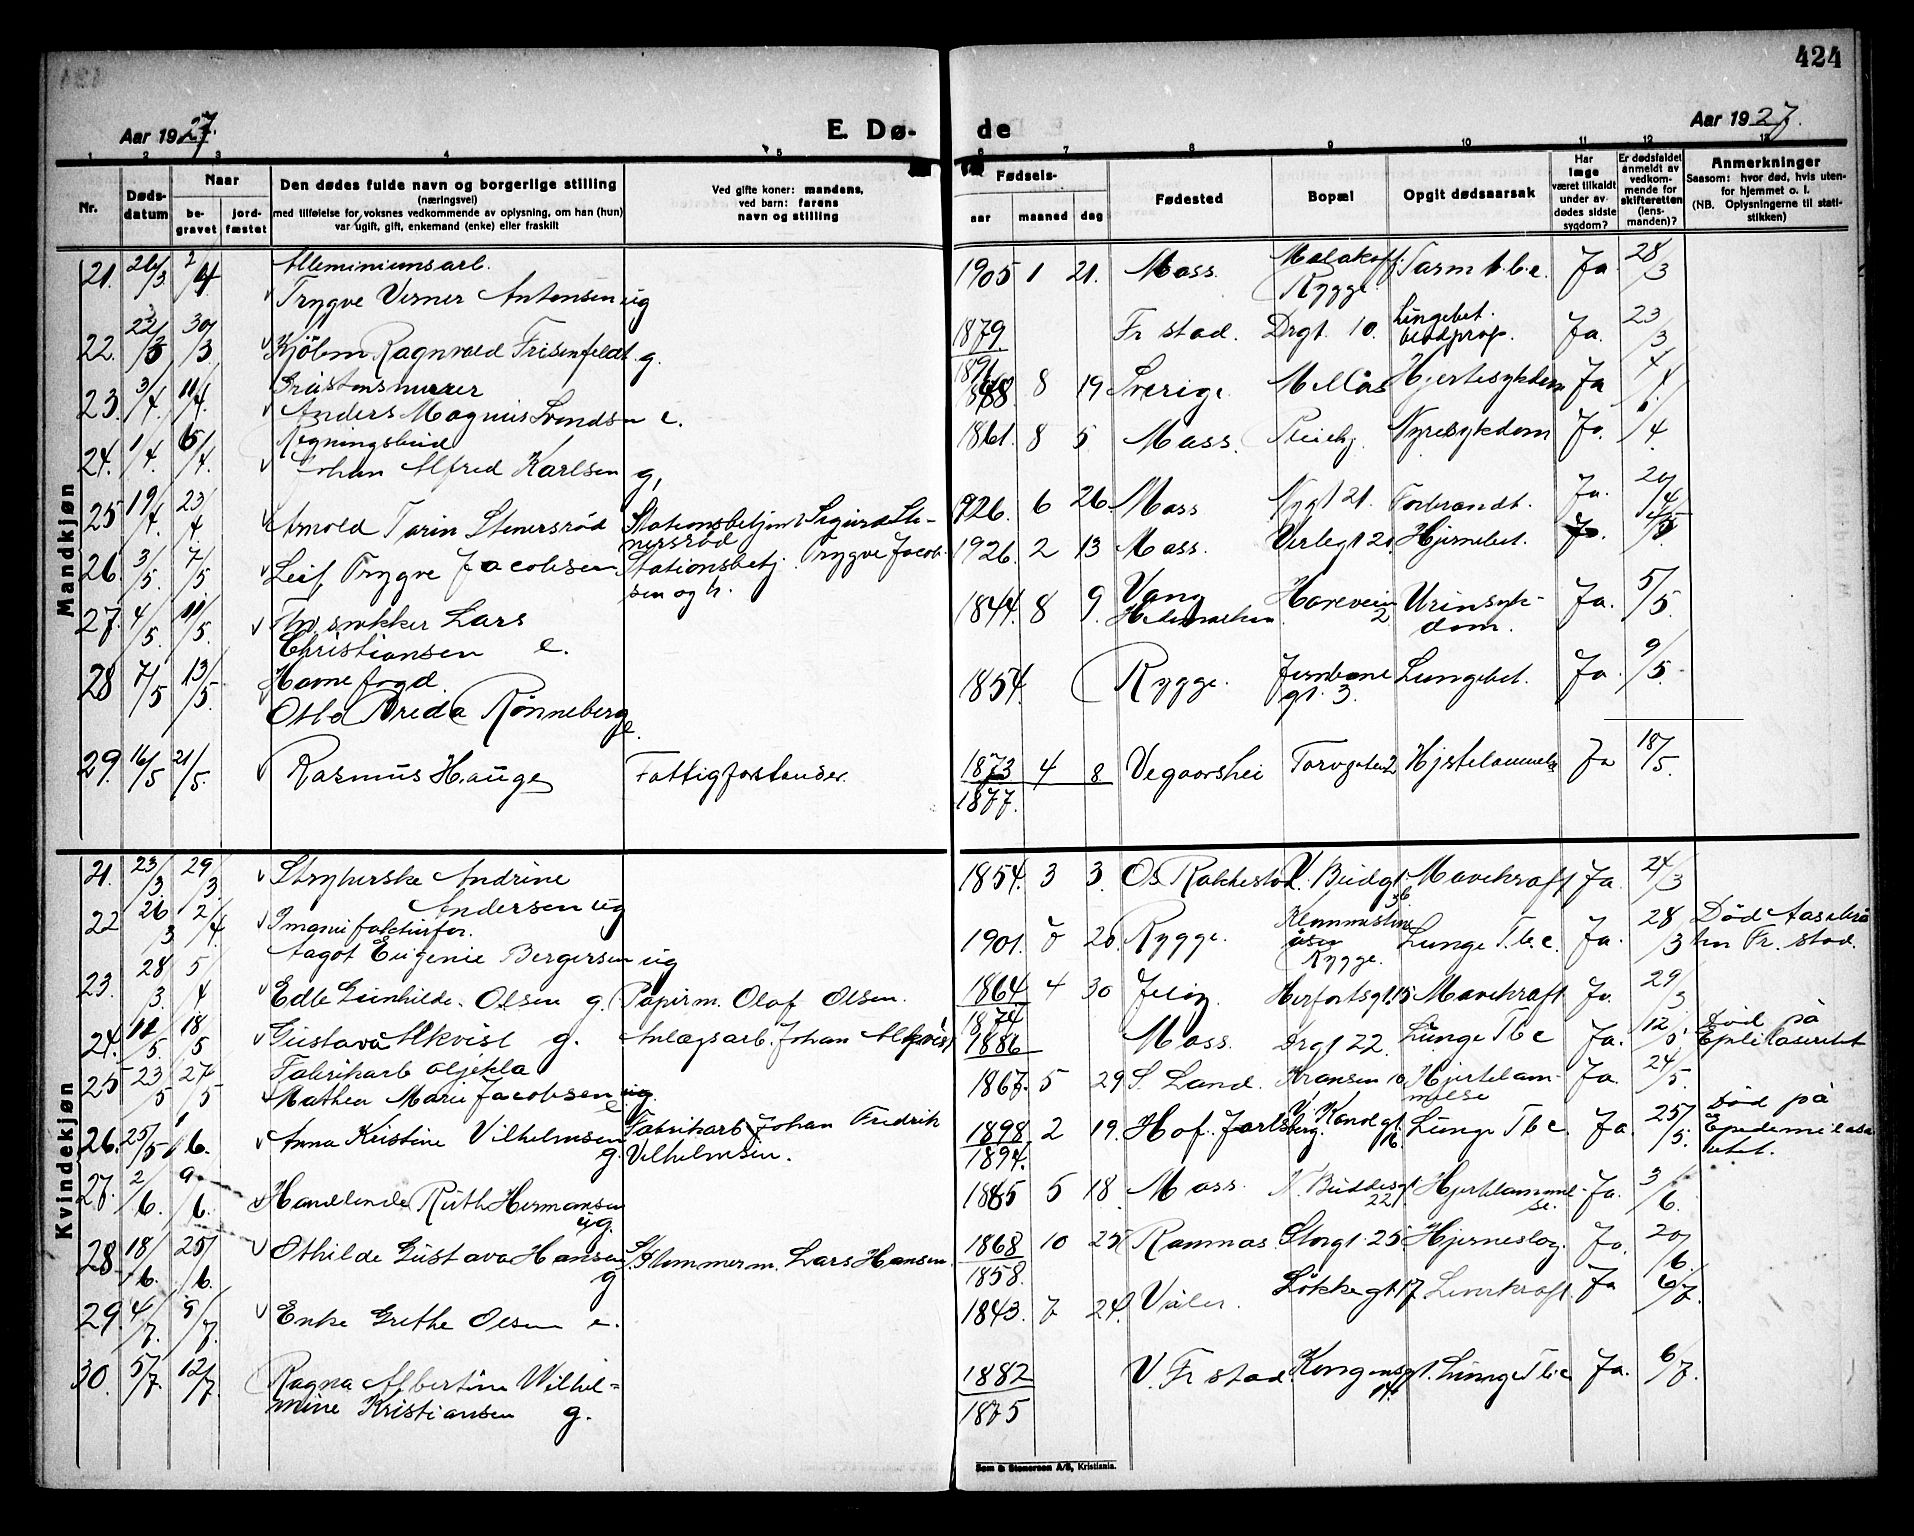 424
Aar 1927.
E. Dø-
de
Aar 1927.
1 2 3 4 5 6 7 8 9 10 11 12 13
Nr.
Døds-
datum
Naar
be-
gravet
jord-
fæstet
Den dødes fulde navn og borgerlige stilling
(næringsvei)
med tilføielse for voksnes vedkommende av oplysning, om han (hun)
var ugift, gift, enkemand (enke) eller fraskilt
Ved gifte koner: mandens,
ved barn: farens
navn og stilling
Fødsels-
aar maaned dag
Fødested
Bopæl
Opgit dødsaarsak
Har
læge
været tilkaldt
under av-
dødes sidste
sygdom?
Er dødsfaldet
anmeldt av
vedkom-
mende for
skifteretten
(lens-
manden)?
Anmerkninger
Saasom: hvor død, hvis uten-
for hjemmet o. l.
(NB. Oplysningerne til stati-
stikken)
Mandkjøn
Alleminiumsarb.
21. 26/3 2/4 Trygve Verner Antonsen ug 1905 1 21. Moss. Malakoff Rygge. Tarm t.b.c. Ja 28/3
22. 30/3 Ragnvald Frisenfeldt g. 1879 1891 Fr stad. Drgt. 10. Lungebet. blodprop. Ja. 23/3
23. 3/4. 11/4. Anders Magnus Svendsen e. 8 19 Sverige. Mellös Hjertesykdom Ja
Regningsbud
24. 1/4. 6/4. Johan Alfred Karlsen g, 1861. 8 5 Moss. Nyresykdom Ja.
25 19/4 23/4. Arnold Stenersrød Stationsbetjent Sigurd Ste-
nersrød 926. 6 26. Moss Nygt 21. Forbrandt. Ja. 20/4
26. 3/5. 7/5 Leif Trygve Jacobsen Stationsbetj. Trygve Jacob-
sen og h. 1926. 2 13 Moss. Verlegt 21 Hjernebet. Ja.
27. 4/5. 11/5. Lars
Christiansen e. 1844. 8 9. Vang
Hedemarken Havevein
2 Urinsyk-
dom. Ja. 5/5.
28 7/5 13/5. Havnefogd.
Otto Breda Rønneberg e. 1854. Rygge. Jernbane
gt. 3. Lungebet. Ja. 9/5.
29. 16/5 21/5. Rasmus Hauge Fattigforstander. 1873 4 8 Vegaarshei Hjertelammelse Ja 18/5.
1877.
Kvindekjøn
21. 23/3 29/3. Strykerske Andrine
Andersen ug 1854. 3 3. Os Rakkestad. V. Budgt.
36 Mavekraft Ja. 24/3
22 26/3 2/4. I manufakturfor.
Aagot Eugenie Bergersen ug 1901. 7 20. Rygge. Rygge. Lunge T.b.c. Ja. 28/3 Død
Fr. stad.
23. 28/3. 5/4 Edle Gunhilde. Olsen g. Papirm. Olaf Olsen. 1864 1874 4 30 Jeløy. Herfortsgt. 15 Mavekraft Ja. 29/3
24. 18/5 Gustava Alkvist g. Anlægsarb. Johan Alkvist 1886 Moss. Drgt 22. Lunge Tbc Ja. Død på
Epilasarettet
25 23/5 27/5 Fabrikarb
Mathea Marie Jacobsen ug. 1867. 5 29 S. Land. Kransen 10 Hjertelam-
melse Ja. 24/5.
26. 25/5 1/6. Anna Kristine Vilhelmsen g. Fabrikarb. Johan Fredrik
Vilhelmsen. 1898 2 19. Hof. Jarlsberg. Lunge Tbc Ja. 25/5. Død på
1894.
27. 2/6. 9/6. Handlende Ruth Hermansen ug. 1885 5 18. Moss. N. Buddesgt
22 Hjertelammel-
se. Ja. 3/6.
28 18/6. 25/6. Othilde Gustava Hansen g Lars Hansen. 1868 10 25 Ramnæs. Storgt. 25 Hjerneslag. Ja. 20/6.
1858.
29. 4/7. 9/7. Enke Grethe Olsen e. 1843. 7 24. Våler. Løkkegt. 17. Leverkraft. Ja 6/7.
30. 5/7. 12/7. Ragna Albertine Wilhel-
mine Kristiansen g. 1882 V. Fr stad. Kongensgt. Lunge Tbc Ja. 6/7.
1875
Sem & Stenersen A/S, Kristiania.